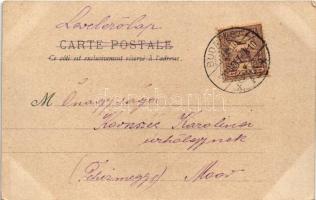 Levelezőlap
CARTE POSTALE
Ce côté est exclusivement réservé à l'adresse.
M. Őnagysága
Karolina
úrhölgynek
(Fehérmegye) Moór
BUDAPEST